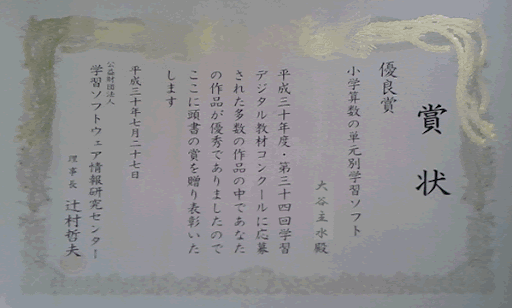 賞状
優良賞
小学算数の単元別学習ソフト
大谷主水殿
平成三十年度・第三十四回学習
デジタル教材コンクールに応募
された多数の作品の中であなた
の作品が優秀でありましたので
ここに頭書の賞を贈り表彰いた
します
平成三十年七月二十七日
公益財団法人
学習ソフトウェア情報研究センター
理事長 辻村哲夫